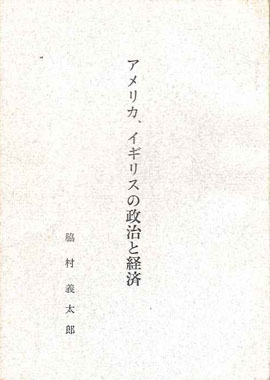 アメリカ、イギリスの政治と経済
脇村義太郎